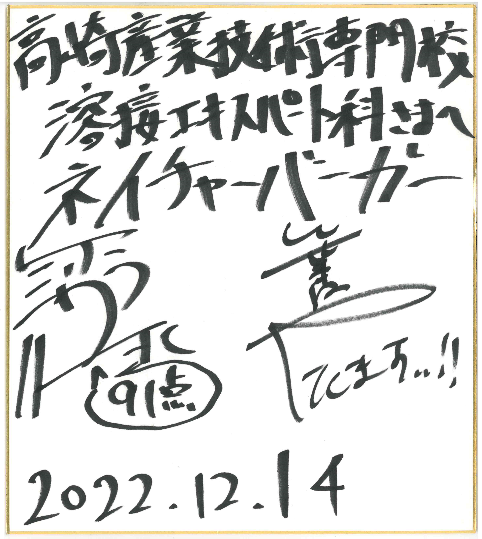 高崎産業技術専門校
溶接エキスパート科さまへ
ネイチャーバーガー
91点
てきます..!!
2022.12.14